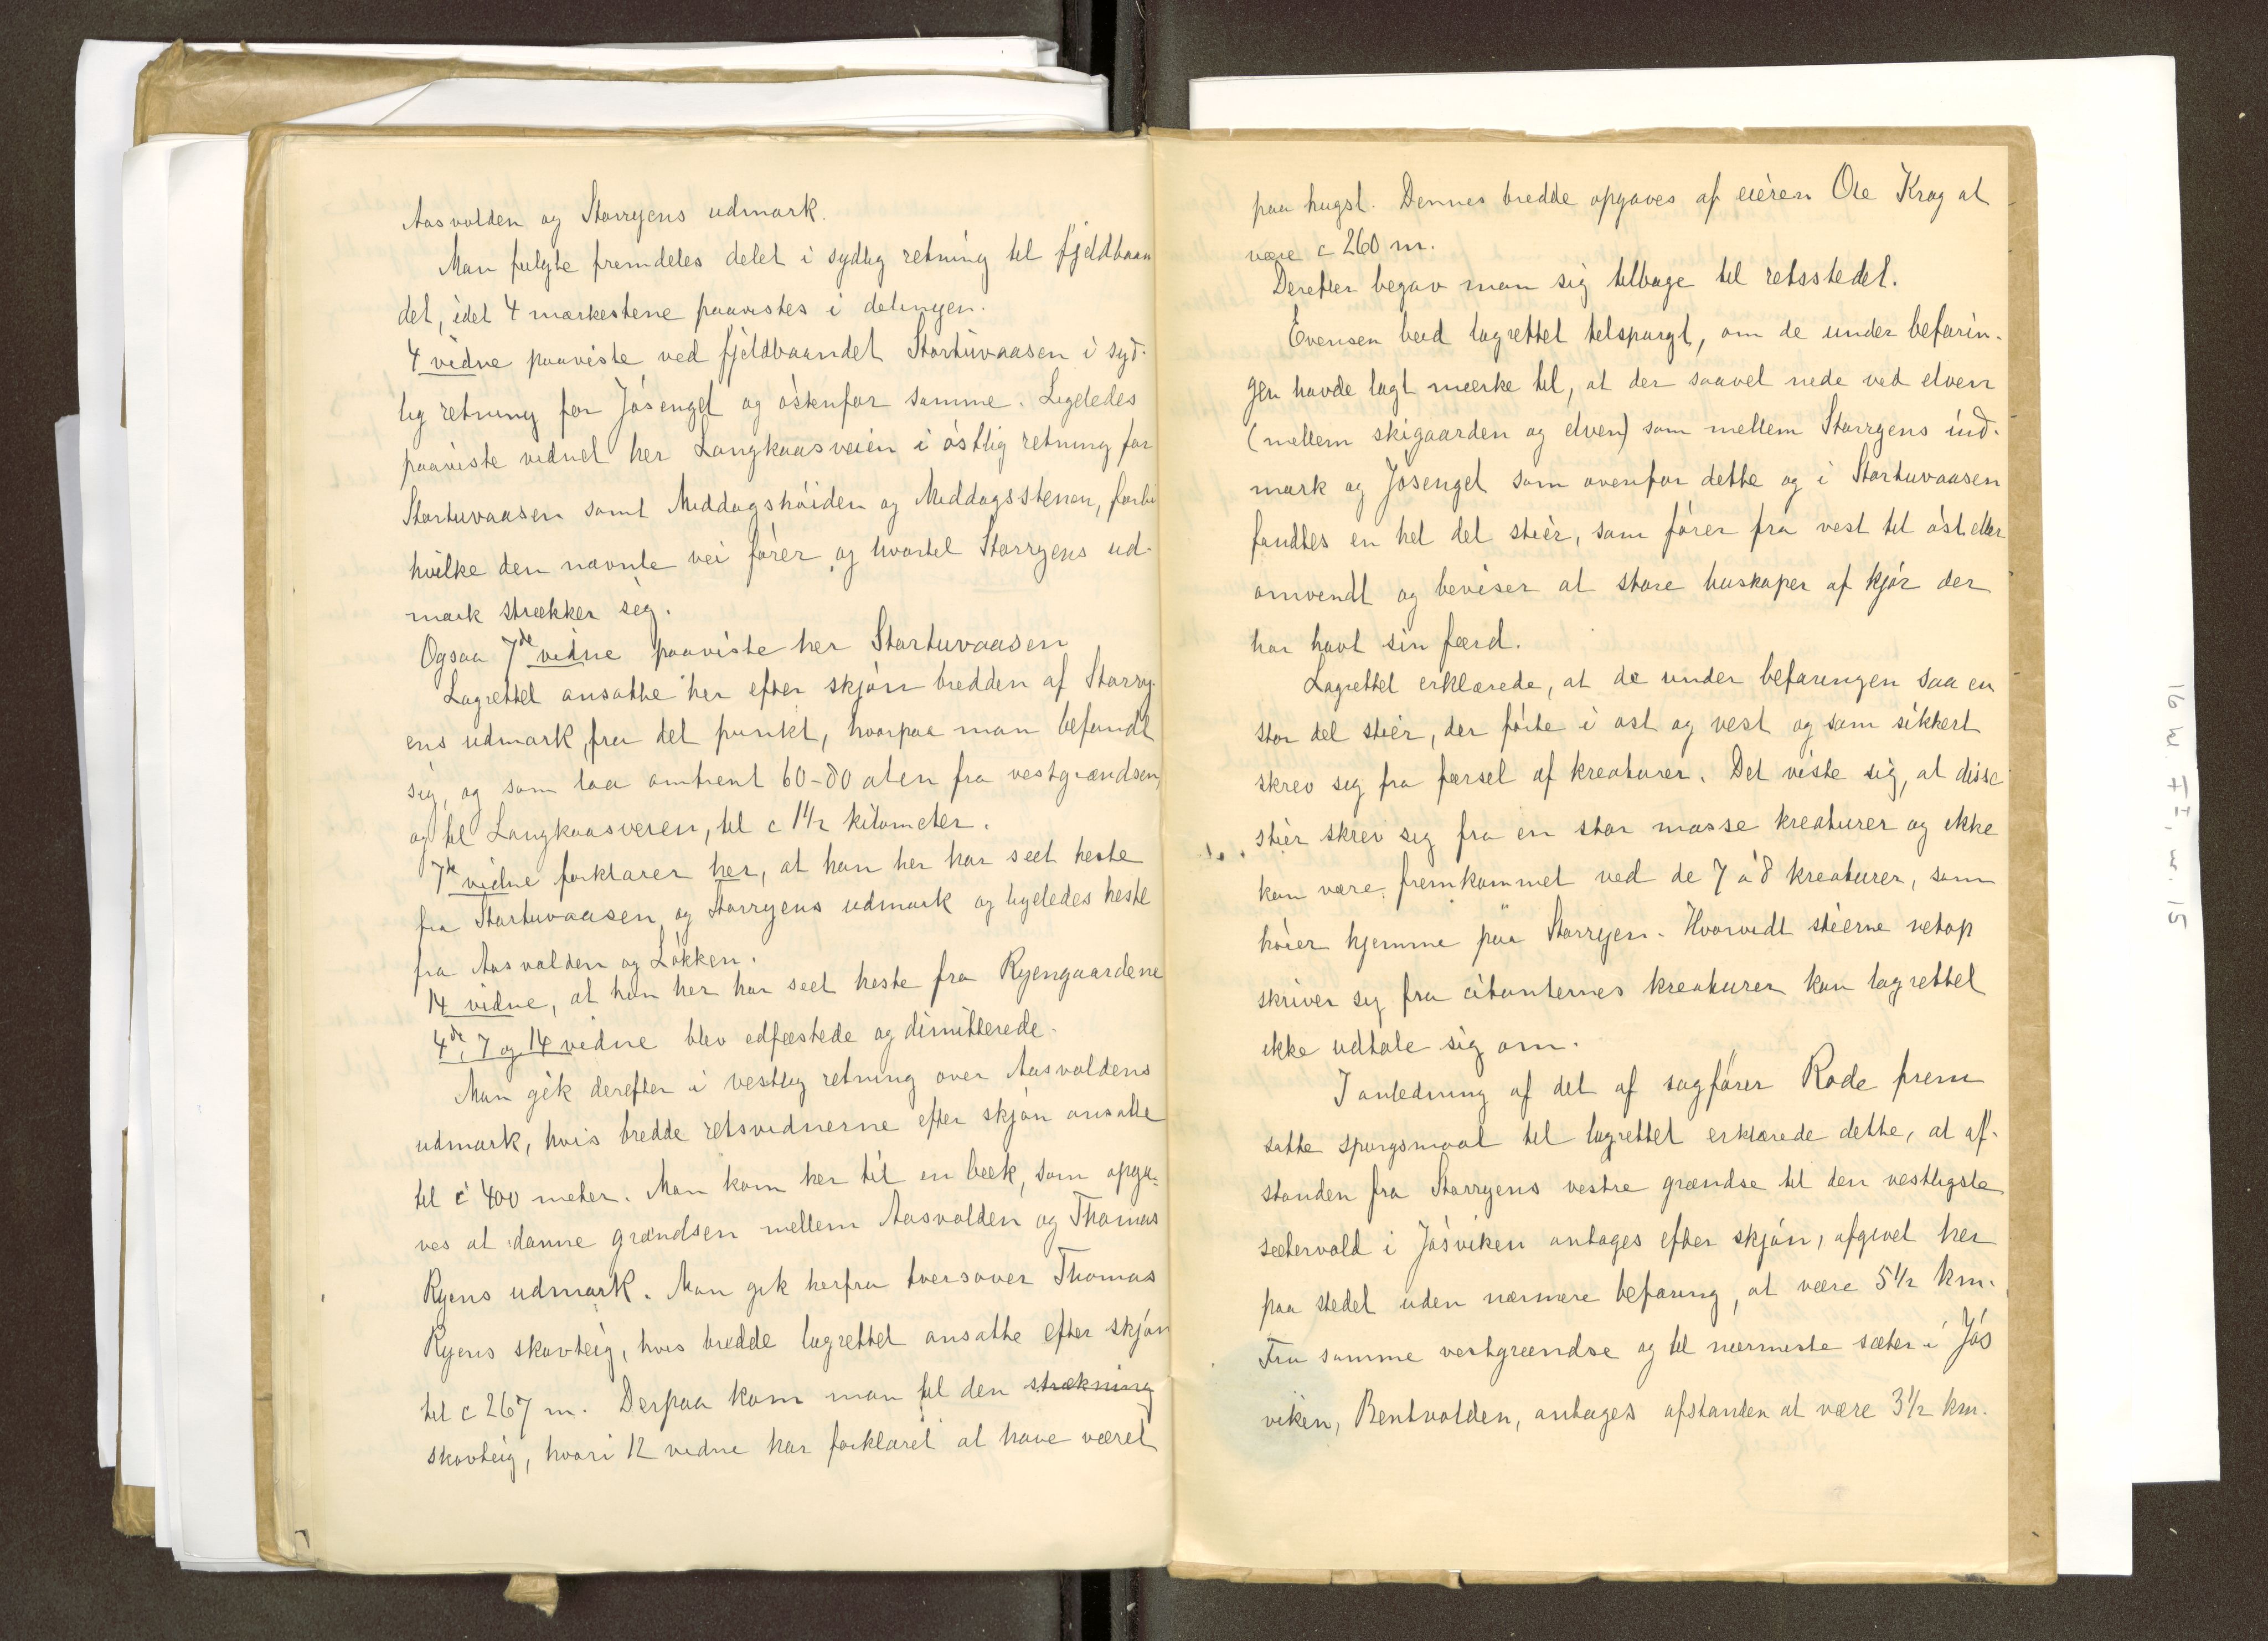 Aasvolden og Storryens udmark.
Man fulgte fremdeles delet i sydlig retning til fjeldbaan
det, idet 4 mærkestene paavistes i delingen.
4 vidne paaviste ved fjeldbaandet Stortuvaasen i syd-
lig retning for Jösenget og östenfor samme. Ligeledes
paaviste vidnet her Langkaasveien i östlig retning for
Stortuvaasen samt Middagshöiden og Middagsstenen, forbi
hvilke den nævnte vei förer og hvortil Storryens ud-
mark strækker sig.
Ogsaa 7de vidne paaviste her Stortuvaasen
Lagrettet ansatte her efter skjön bredden af Storry-
ens udmark, fra det punkt, hvorpaa man befandt
sig, og som laa omtrent 60-80 alen fra vestgrændsen,
og til Langkaasveien, til c 1 1/2 kilometer.
7de vidne forklarer her, at han her har seet heste
fra Stortuvaasen og Storryens udmark og ligeledes heste
fra Aasvolden og Lökken.
14 vidne, at han her har seet heste fra Ryengaardene
4de, 7 og 14 vidne blev edfæstede og dimitterede.
Man gik derefter i vestlig retning over Aasvoldens
udmark, hvis bredde retsvidnerne efter skjön ansatte
til c 400 meter. Man kom her til en bæk, som opga-
ves at danne grændsen mellem Aasvolden og Thomas
Ryens udmark. Man gik herfra tversover Thomas
Ryens skovteig, hvis bredde lagrettet ansatte efter skjön
til c 267 m. Derpaa kom man til den strækning
skovteig, hvori 12 vidne har forklaret at have været
paa hugst. Dennes bredde opgaves af eieren Ole Krog at
være c 260 m.
Derefter begav man sig tilbage til retsstedet.
Evensen bad lagrettet tilspurgt, om de under befarin-
gen havde lagt mærke til, at der saavel nede ved elven
(mellem skigaarden og elven) som mellem Storryens ind-
mark og Jösenget som ovenfor dette og i Stortuvaasen
fandtes en hel del stier, som förer fra vest til öst eller
omvendt og beviser at store buskaper af kjör der
har havt sin færd.
Lagrettet erklærede, at de under befaringen saa en
stor del stier, der förte i ost og vest og som sikkert
skrev sig fra færsel af kreaturer. Det viste sig, at disse
stier skrev sig fra en stor masse kreaturer og ikke
kan være fremkommet ved de 7 à 8 kreaturer, som
hörer hjemme paa Storryen. Hvorvidt stierne netop
skriver sig fra citanternes kreaturer kan lagrettet
ikke udtale sig om.
I anledning af det af sagförer Rode frem
satte spörgsmaal til lagrettet erklærede dette, at af-
standen fra Storryens vestre grændse til den vestligste
sætervold i Jösviken antages efter skjön, afgivet her
paa stedet uden nærmere befaring, at være 5 1/2 km.
Fra samme vestgrændse og til nærmeste sæter i Jös
viken, Bentvolden, antages afstanden at være 3 1/2 km.